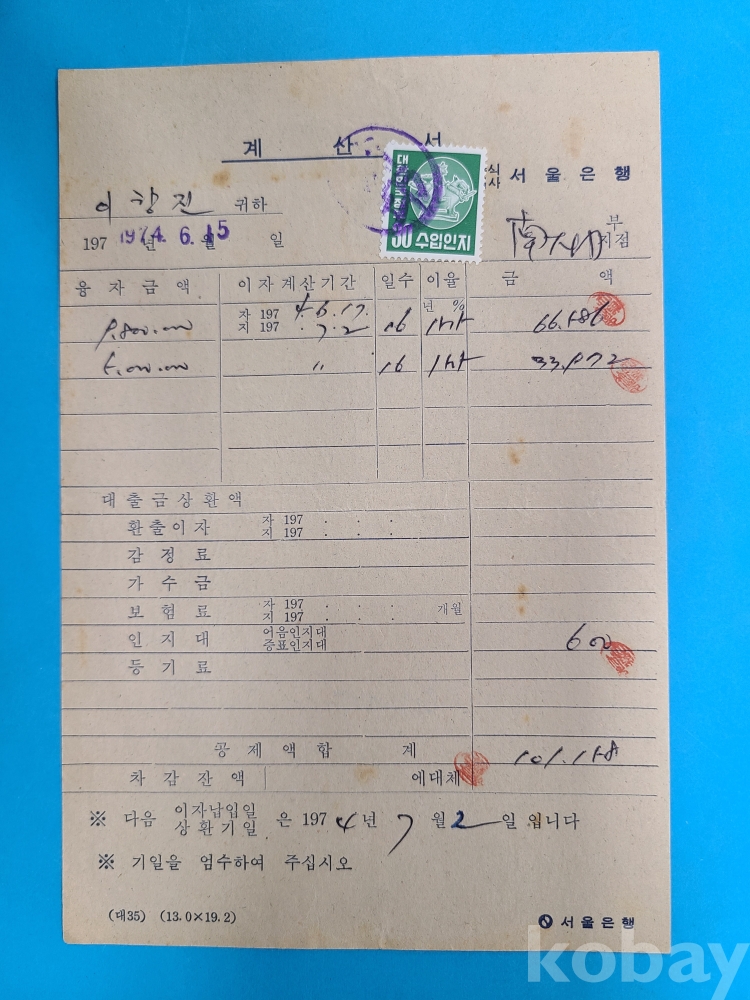 계 산 서
주식회사 서울은행
대한민국정부
30 수입인지
이창진 귀하
부
지점
197 1974. 6. 15 년 월 일
융자금액 이자계산기간 일수 이율 금 액
년 %
자 197 4. 6. 17.
지 197 . 7. 2 16
〃 16
대출금상환액
환출이자 자 197 . . .
지 197 . . .
감정료
가수금
보험료 자 197 . . .
지 197 . . . 개월
인지대 어음인지대
증표인지대 600
등기료
공제액합 계
차감잔액 에대체
※ 다음 이자납입일
상환기일 은 197 4 년 7 월 2 일 입니다
※ 기일을 엄수하여 주십시오
(대35) (13.0×19.2) 서울은행
kobay